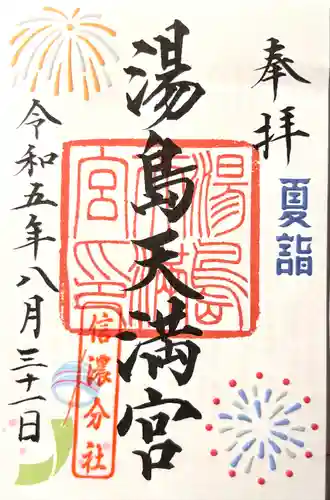 奉拝
夏詣
湯島天満宮
湯島
天満
宮印
信濃分社
令和五年八月三十一日